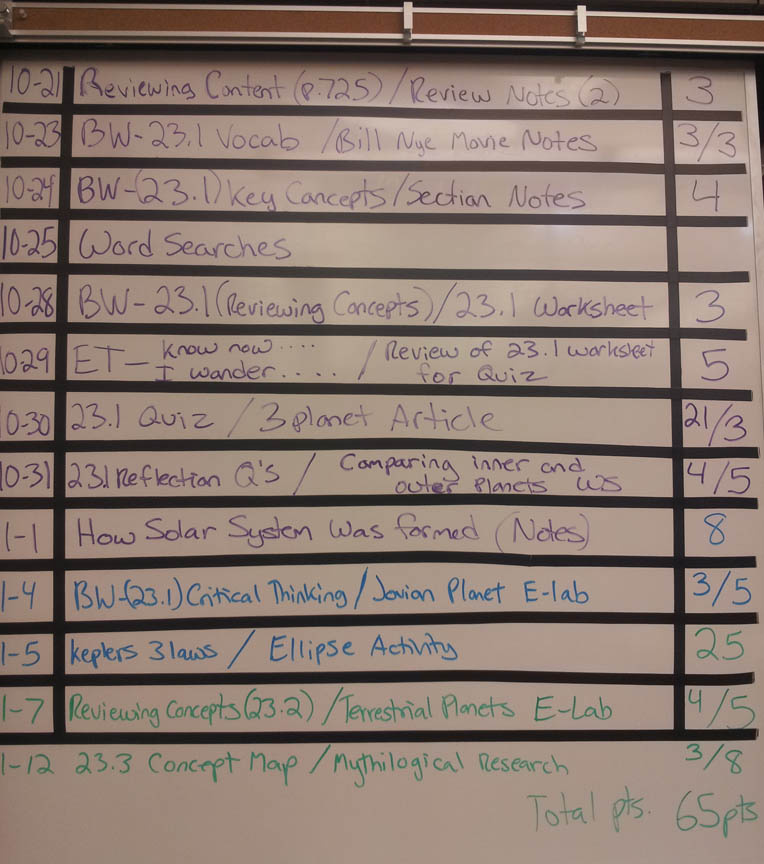 10-21 Reviewing Content (p.725) / Review Notes (2) 3
10-23 BW-23.1 Vocab / Bill Nye Movie Notes 3/3
10-24 BW-(23.1) Key Concepts / Section Notes 4
10-25 Word Searches
10-28 BW-23.1 (Reviewing Concepts) / 23.1 Worksheet 3
10-29 ET- Know now.... / Review of 23.1 worksheet 5
I wander..... for Quiz
10-30 23.1 Quiz / 3 planet Article 21/3
10-31 23.1 Reflection Q's / Comparing inner and 4/5
outer Planets WS
1-1 How Solar System Was formed (Notes) 8
1-4 BW-(23.1) Critical Thinking / Jovian Planet E-lab 3/5
1-5 keplers 3 laws / Ellipse Activity 25
1-7 Reviewing Concepts (23.2) / Terrestrial Planets E-Lab 4/5
1-12 23.3 Concept Map / Mythilogical Research 3/8
Total pts. 65pts